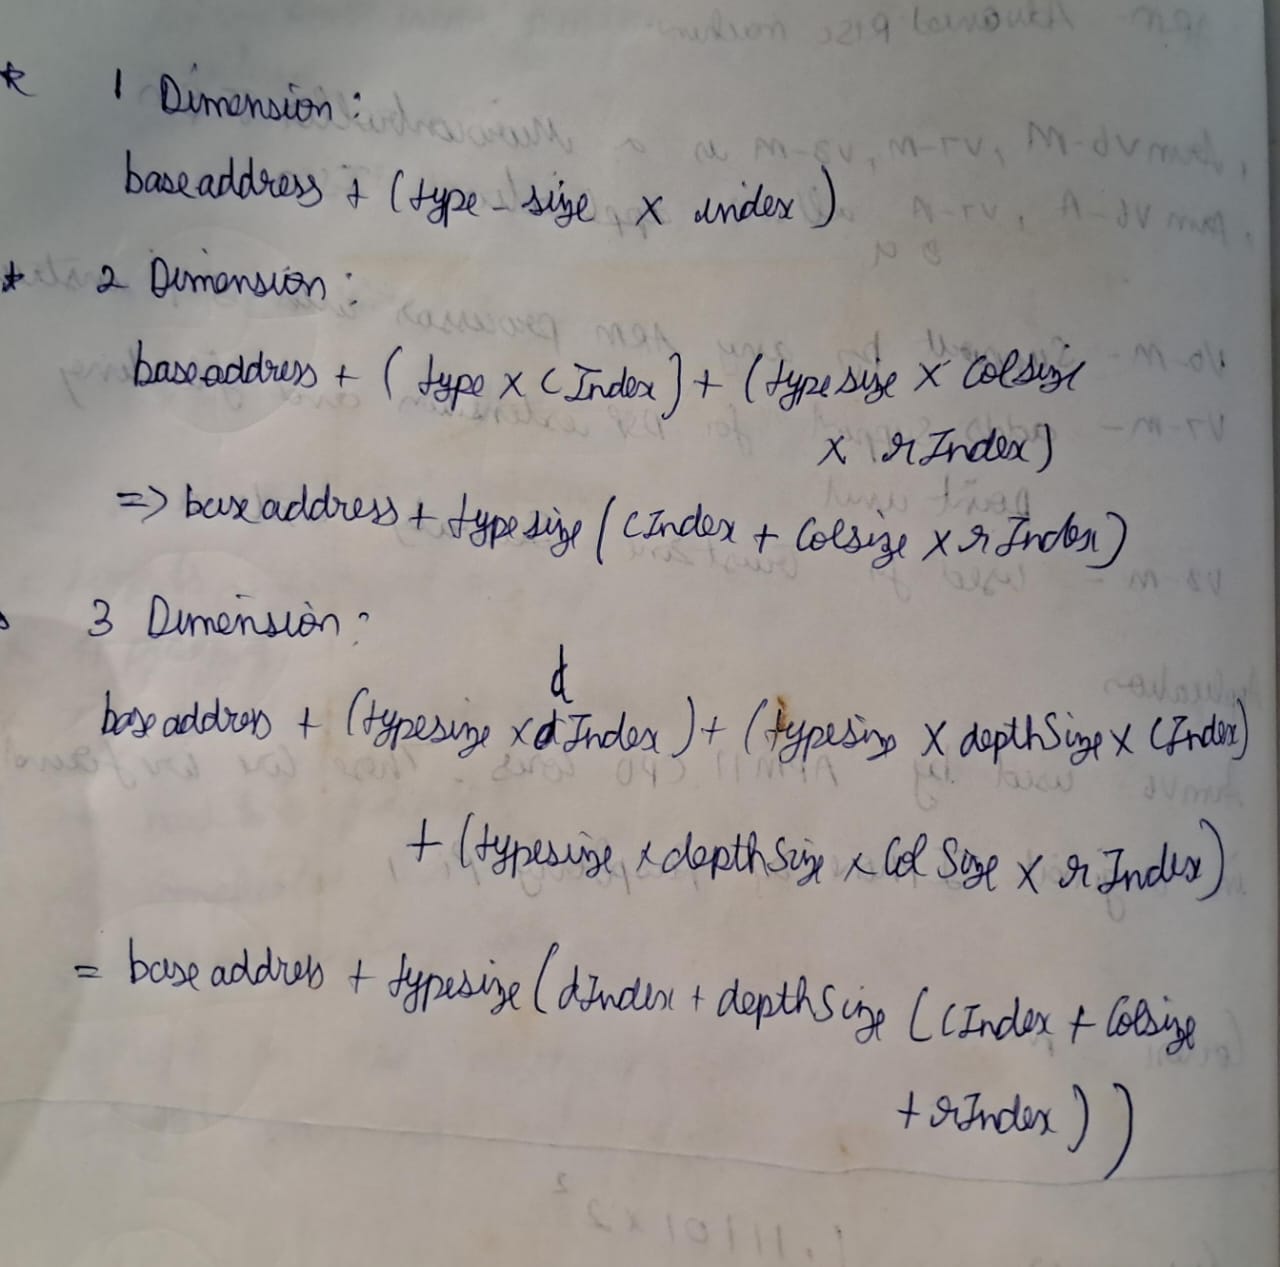 * 1 Dimension:
baseaddress + (type-size x index)
* 2 Dimension:
baseaddress + (type x CIndex) + (typesize x Colsize
x rIndex)
=> baseaddress + typesize (CIndex + Colsize x rIndex)
3 Dimension:
d
baseaddress + (typesize x dIndex) + (typesize x depthSize x CIndex)
+ (typesize x depthSize x ColSize x rIndex)
= baseaddress + typesize (dIndex + depthSize (CIndex + Colsize
+ rIndex))